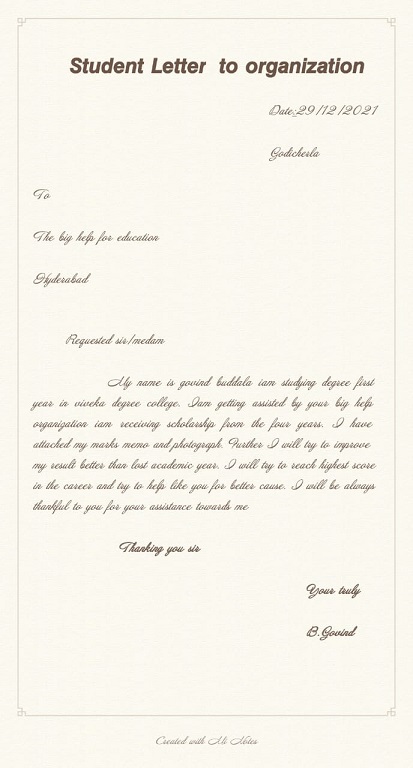 Student Letter to organization
Date:29/12/2021
Godicherla
To
The big help for education
Hyderabad
Requested sir/medam
My name is govind buddala iam studying degree first
year in viveka degree college. Iam getting assisted by your big help
organization iam receiving scholarship from the four years. I have
attached my marks memo and photograph. Further I will try to improve
my result better than lost academic year. I will try to reach highest score
in the career and try to help like you for better cause. I will be always
thankful to you for your assistance towards me
Thanking you sir
Your truly
B.Govind
Created with Mi Notes